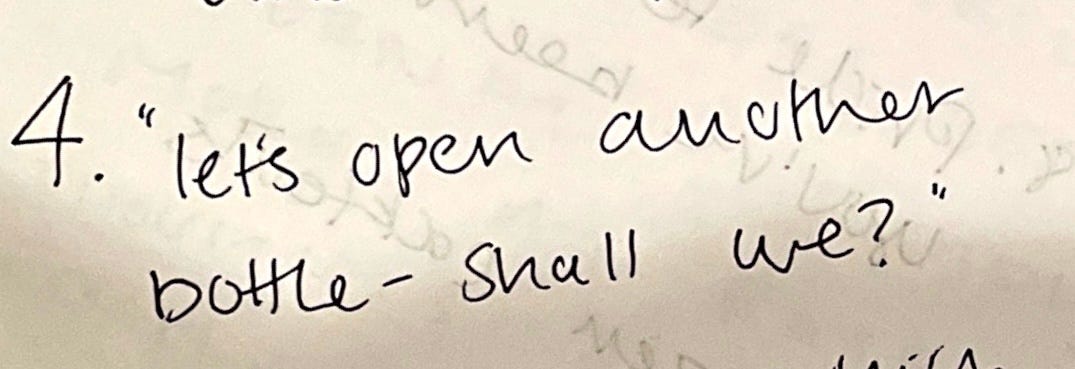 4. "let's open another
bottle - shall we?"